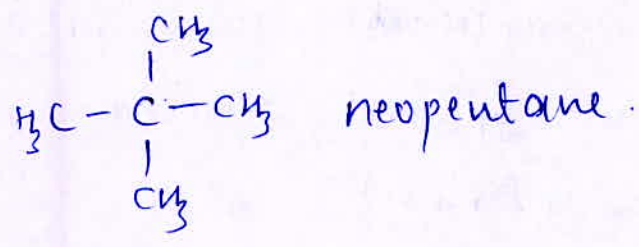 CH3
H3C - C - CH3 neopentane.
CH3